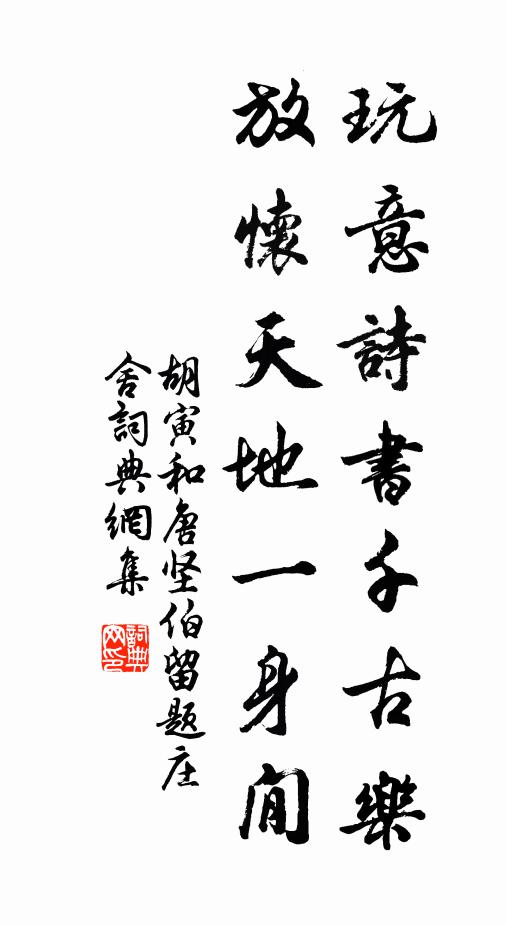 玩意詩書千古樂
放懷天地一身閒
胡寅和唐坚伯留题庄
舍詞典網集
詞典网印